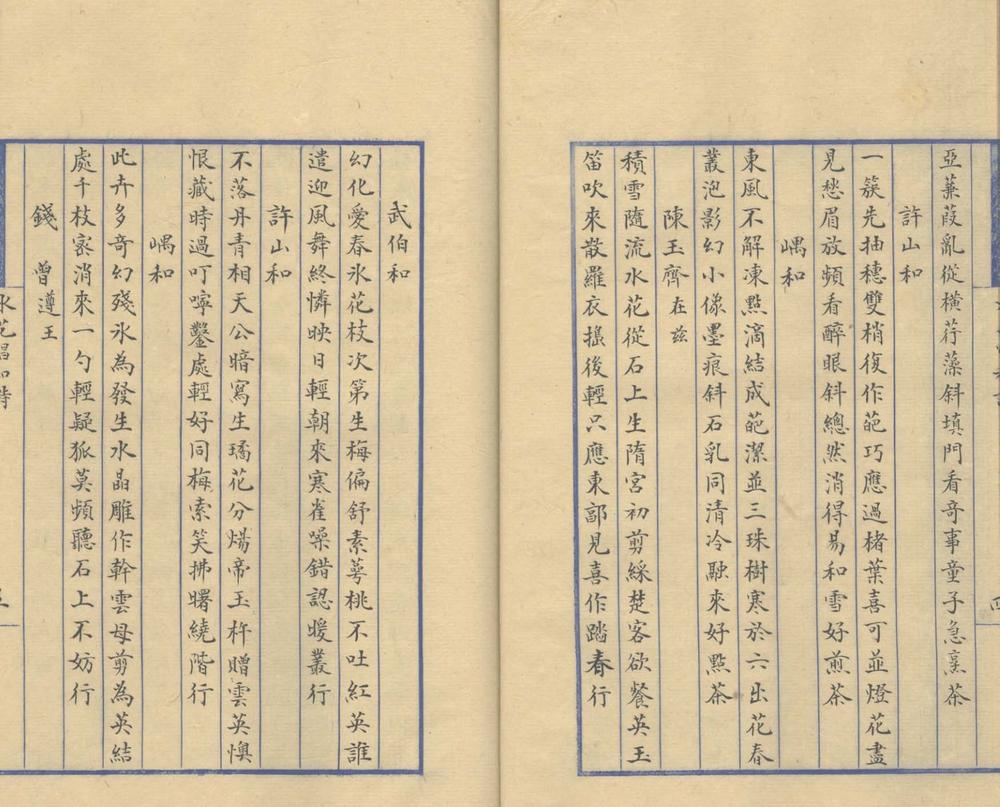 亞蒹葭亂從橫荇藻斜填門看竒事童子急烹茶
許山和
一簇先抽穗雙梢復作葩巧應過楮葉喜可並燈花盡
見愁眉放頻看醉眼斜總然消得易和雪好煎茶
嵎和
東風不解凍點滴結成葩潔並三珠樹寒於六出花春
叢泡影幻小像墨痕斜石乳同清冷融來好點茶
陳玉齊在兹
積雪隨流水花從石上生隋宮初剪綵楚客欲餐英玉
笛吹來散羅衣搖後輕只應東郭見喜作踏春行
武伯和
幻化愛春氷花枝次第生梅偏舒素萼桃不吐紅英誰
遣迎風舞終憐映日輕朝來寒雀躁錯認暖叢行
許山和
不落丹青相天公暗寫生璚花分煬帝玉杵贈雲英懊
恨藏時過叮嚀鑿處輕好同梅索笑拂曙繞階行
嵎和
此卉多奇幻殘氷為發生水晶雕作幹雲母剪為英結
處千枝宻消來一勺輕疑狐莫頻聽石上不妨行
錢曾遵王
氷花唱和詩